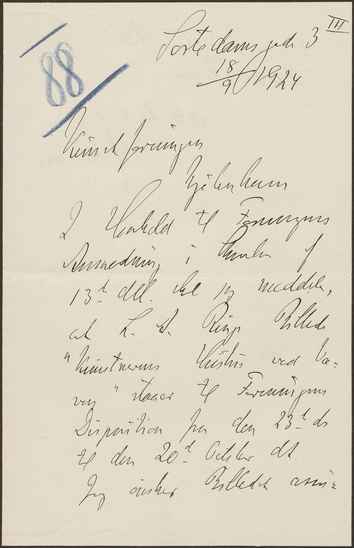 88
Sortedamsgade 3 III
18/9 1924
Kunstforeningen
København
I Henhold til Foreningens
Anmodning i Skrivelse af
13d ds. skal jeg meddele,
at L. A. Rings Billede
"Kunstnerens Hustru ved Ka-
ven" staaer til Foreningens
Disposition fra den 23d ds
til den 20d Octbr. d.A.
Jeg ønsker Billedet assu-